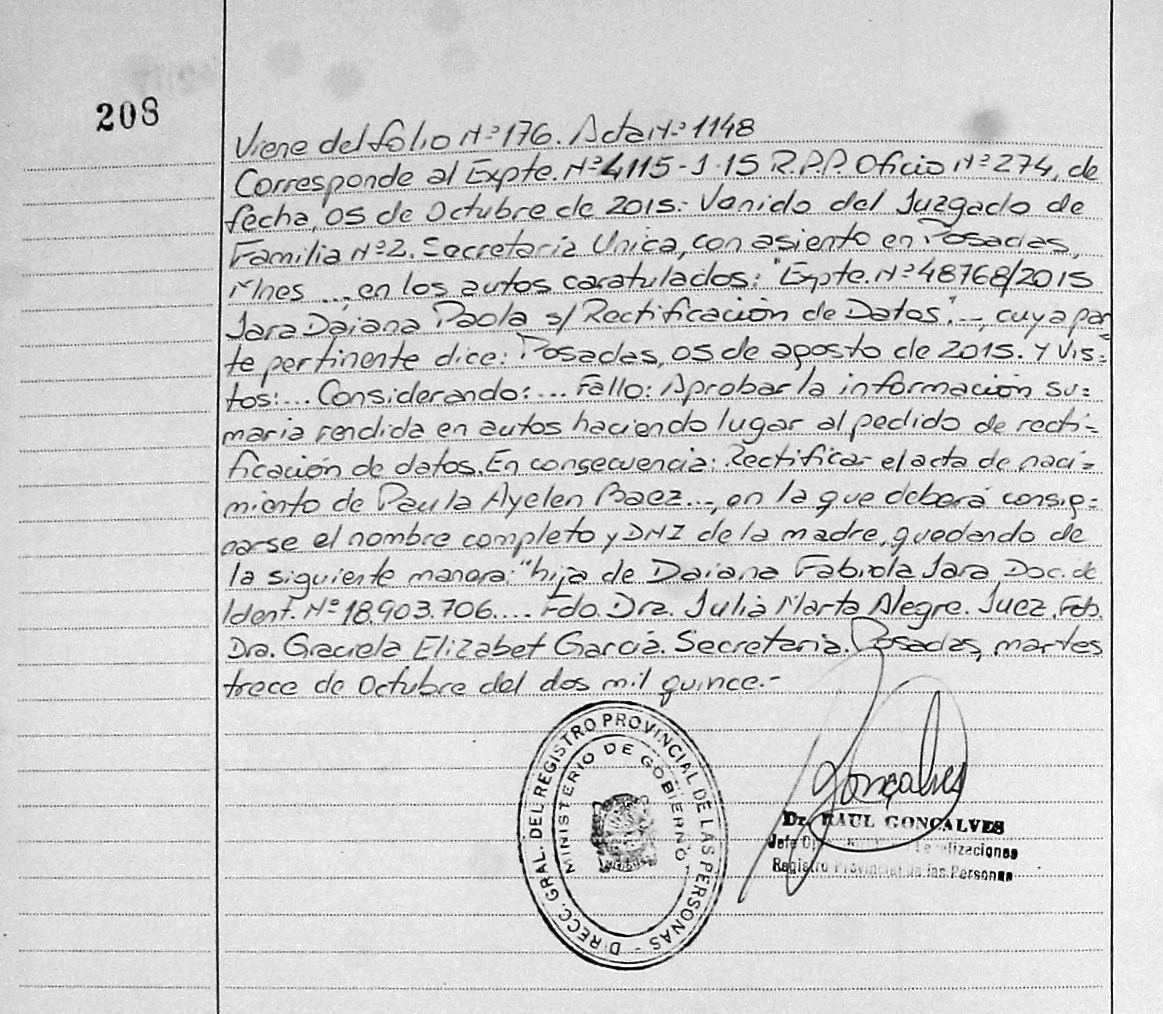 208
Viene del folio Nº 176. Acta Nº 1148
Corresponde al Expte. Nº 4115-J-15 R.P.P. Oficio Nº 274, de
fecha, 05 de Octubre de 2015:- Venido del Juzgado de
Familia Nº2. Secretaría Unica, con asiento en Posadas,
Mnes ... en los autos caratulados: "Expte. Nº 48768/2015
Jara Daiana Paola s/ Rectificación de Datos"..., cuya par
te pertinente dice: Posadas, 05 de agosto de 2015. Y Vis=
tos:... Considerando:... Fallo: Aprobar la información su=
maria rendida en autos haciendo lugar al pedido de recti=
ficación de datos. En consecuencia: Rectificar el acta de naci=
miento de Paula Ayelen Baez..., en la que deberá consig=
narse el nombre completo y DNI de la madre, quedando de
la siguiente manera: "hija de Daiana Fabiola Jara, Doc. de
Ident. Nº 18.903.706.... Fdo. Dra. Julia Marta Alegre. Juez. Fdo.
Dra. Graciela Elizabet Garcia. Secretaria. Posadas, martes
trece de Octubre del dos mil quince.-
DIRECC. GRAL. DEL REGISTRO PROVINCIAL DE LAS PERSONAS -
MINISTERIO DE GOBIERNO
Gonçalves
Dr. RAUL GONÇALVES
Jefe
Registro Provincial de las Personas